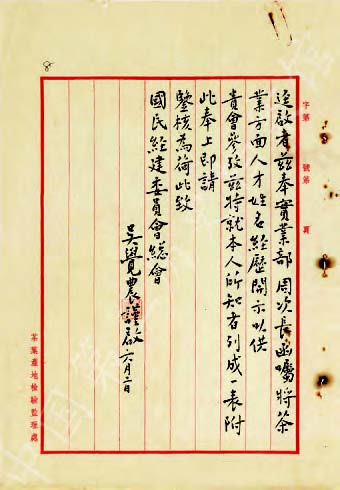 字第　號第　頁
逕啟者茲奉實業部周次長函囑將茶
業方面人才姓名經歷開示以供
貴會參攷茲特就本人所知者列成一表附
此奉上即請
鑒核為荷此致
國民經建委員會總會
吳覺農謹啟六月二日
茶葉產地檢驗監理處
8